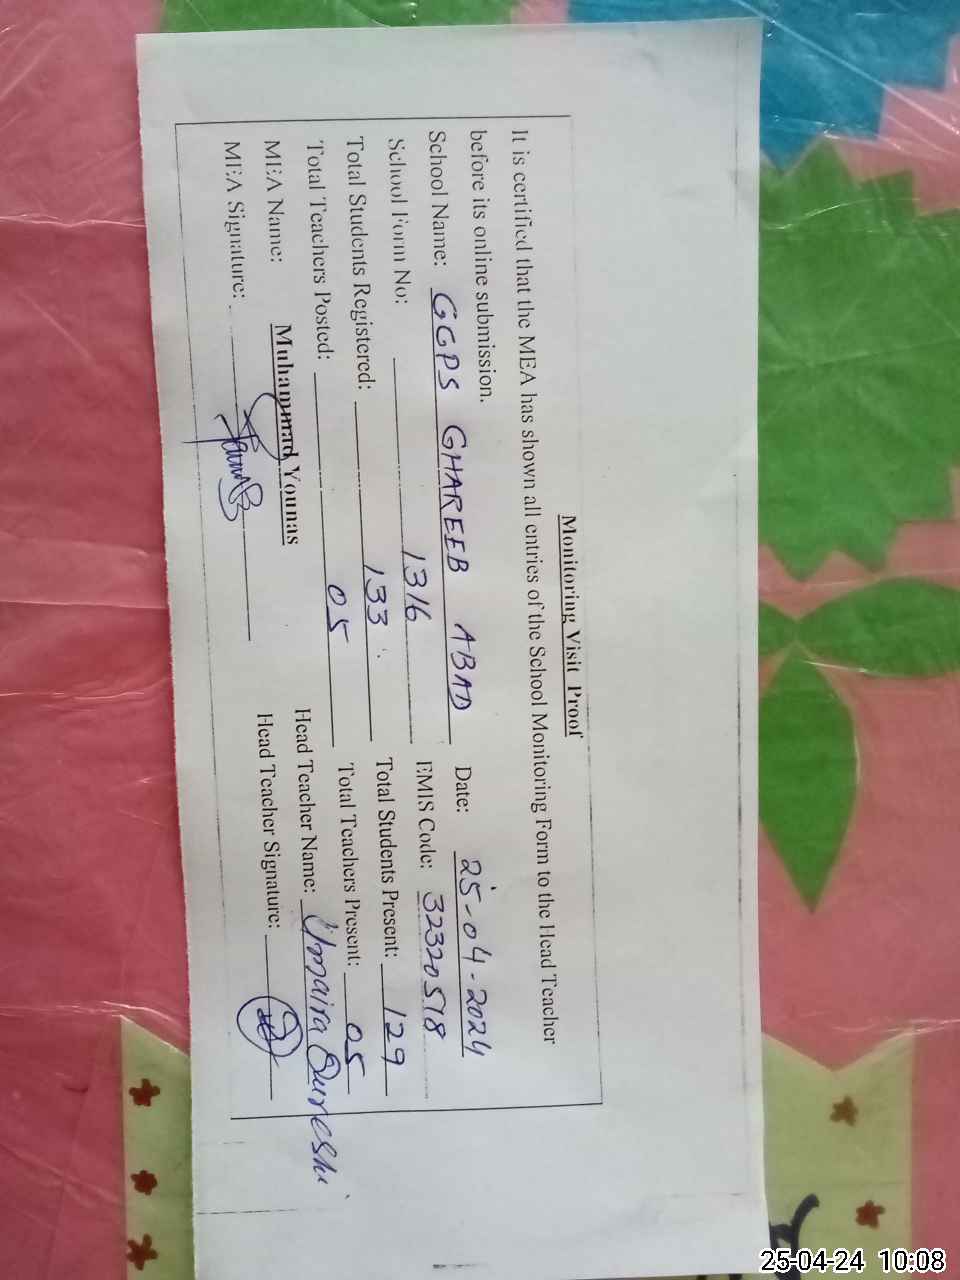 Monitoring Visit Proof
It is certified that the MEA has shown all entries of the School Monitoring Form to the Head Teacher
before its online submission.
School Name: GGPS GHAREEB ABAD Date: 25-04-2024
School Form No: 1316 EMIS Code: 32320518
Total Students Registered: 133 Total Students Present: 129
Total Teachers Posted: 05 Total Teachers Present: 05
MEA Name: Muhammad Younas Head Teacher Name: Umaira Qureshi
MEA Signature: Head Teacher Signature:
25-04-24 10:08